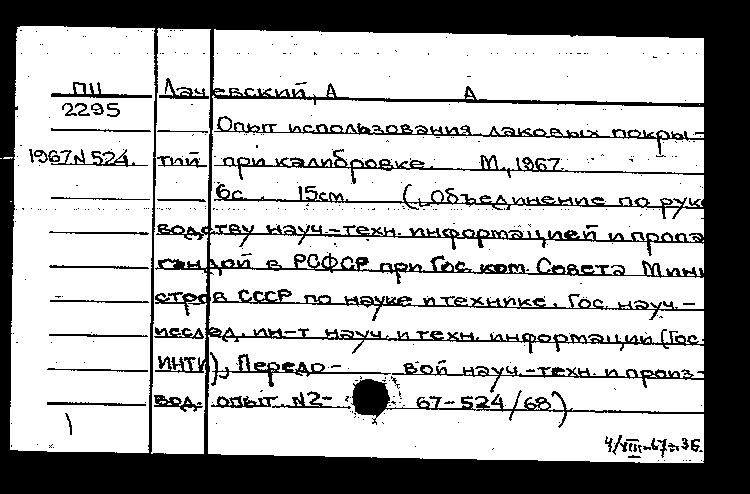 ПII Лачевский, А А
2295
Опыт использования лаковых покры-
1967 N 524. тий при калибровке. М., 1967.
6с. 15см. („Объединение по руко
водству науч.-техн. информацией и пропа
гандой в РСФСР при Гос. ком. Совета Мини
стров СССР по науке и технике. Гос. науч.-
исслед. ин-т науч. и техн. информации (Гос.
ИНТИ), Передо- вой науч.-техн. и произ-
вод. опыт. N2- 67-524/68)
4/VIII-67г.